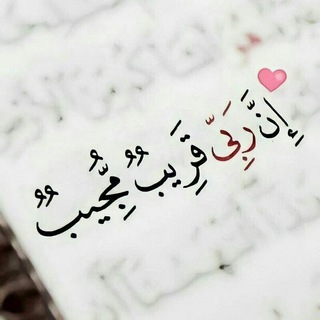 إِنَّ رَبِّىِ قَرِيبٌ مُّجِيبٌ